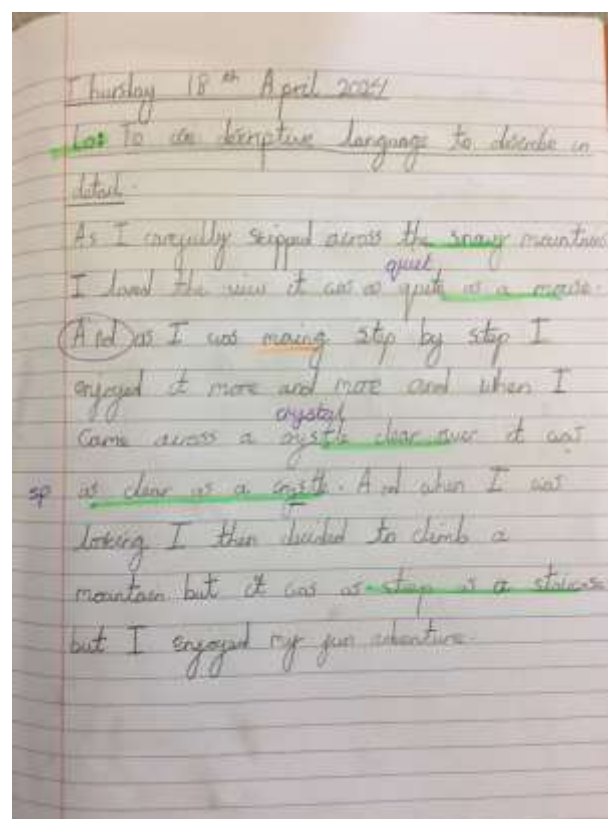 Thursday 18th April 2024
Lo: To use descriptive language to describe in
detail.
As I carefully skipped across the snowy mountains
quiet
I loved the view it was as quite as a mouse.
And as I was moving step by step I
enjoyed it more and more and when I
crystal
Came across a crystle clear river it was
sp as clear as a crystle. And when I was
looking I then decided to climb a
mountain but it was as steep as a staircase
but I enjoyed my fun adventure.